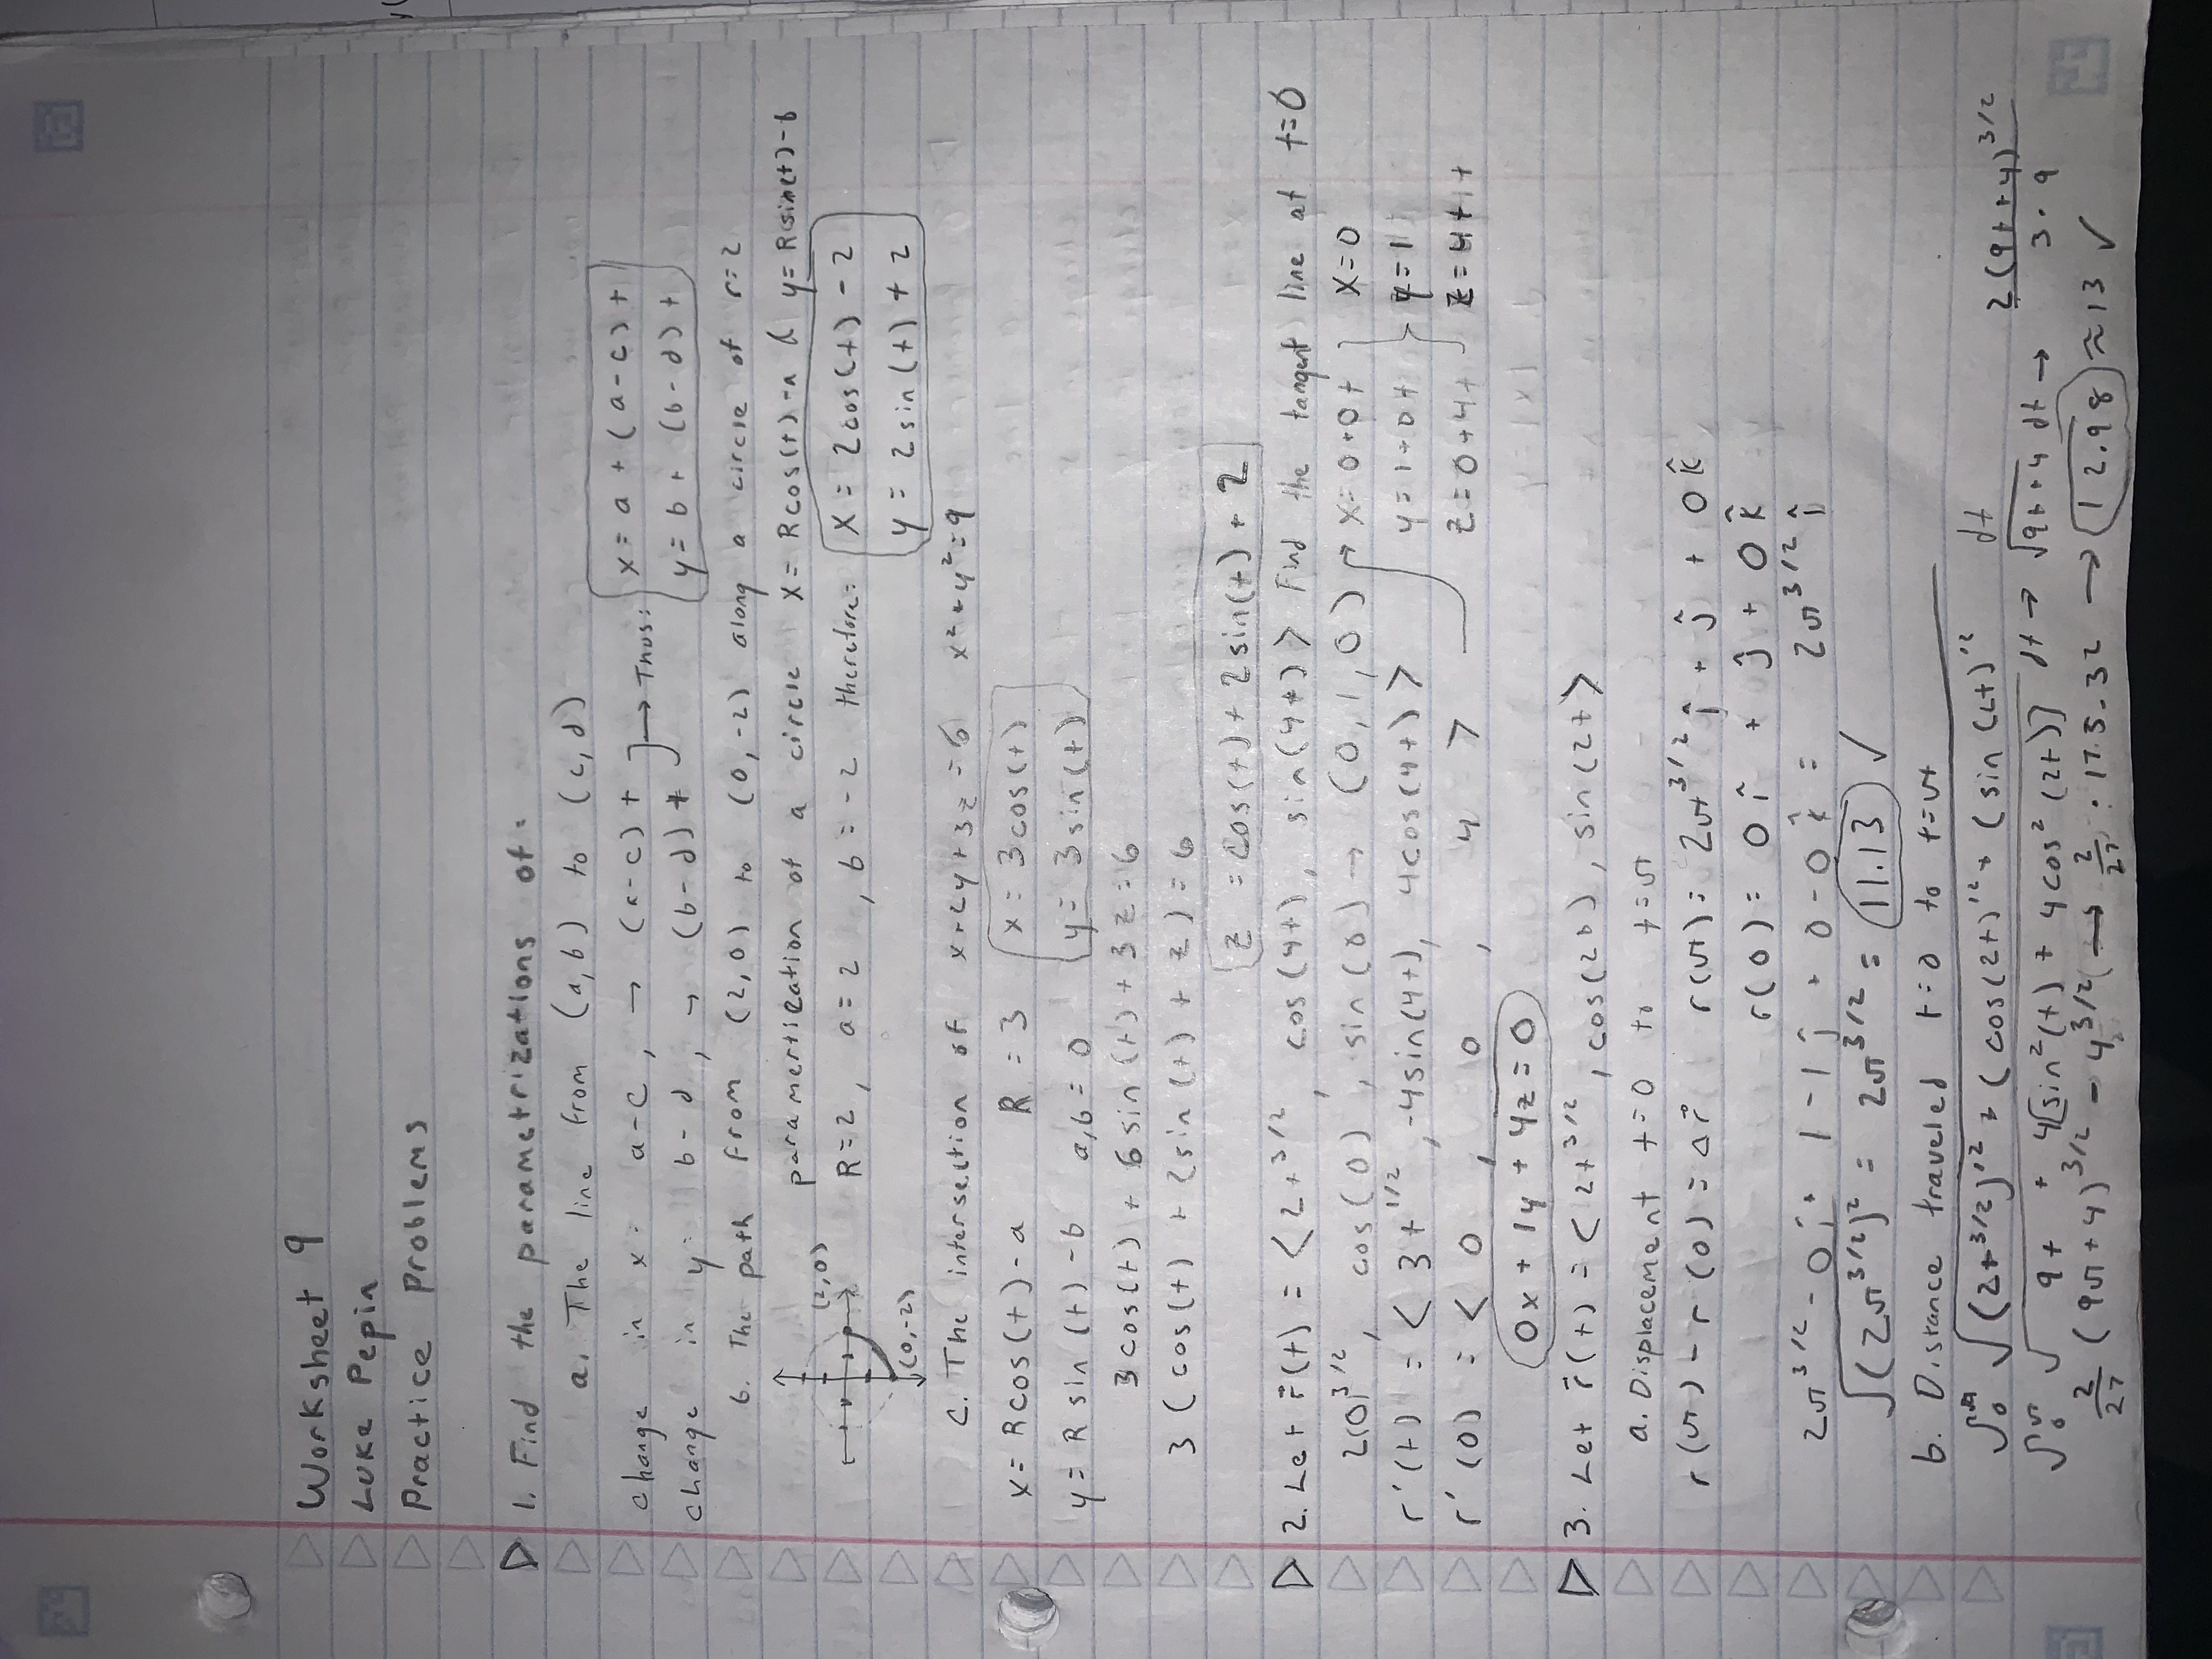 Worksheet 9
Luke Pepin
Practice Problems
1. Find the parametrizations of:
a. The line from (a,b) to (c,d)
change in x: a-c, → (a-c)t → Thus: x = a + (a-c)t
change in y: b-d, → (b-d)t y = b + (b-d)t
b. The path from (2,0) to (0,-2) along a circle of r=2
paramertization of a circle x = Rcos(t)-a & y = Rsin(t)-b
(2,0)
R=2, a=2, b=-2 therefore: x = 2cos(t) - 2
y = 2sin(t) + 2
(0,-2)
C. The intersection of x+2y+3z=6 x²+y²=9
x = Rcos(t)-a R = 3 x = 3cos(t)
y = Rsin(t)-b a,b = 0 y = 3sin(t)
3cos(t) + 6sin(t) + 3z = 6
3(cos(t) + 2sin(t) + z) = 6
z = cos(t) + 2sin(t) + 2
2. Let r⃗(t) = <2t^3/2, cos(4t), sin(4t)> Find the tangent line at t=0
2(0)^3/2, cos(0), sin(0) → (0,1,0) x = 0+0t x=0
r'(t) = <3t^1/2, -4sin(4t), 4cos(4t)> y = 1+0t y=1
r'(0) = <0, 0, 4> z = 0+4t z=4t
0x + 1y + 4z = 0
3. Let r⃗(t) = <2t^3/2, cos(2t), sin(2t>
a. Displacement t=0 to t=π
r(π) - r(0) = Δr⃗ r(π) = 2π^3/2 î + ĵ + 0k̂
r(0) = 0î + ĵ + 0k̂
2π^3/2 - 0î + 1-1ĵ + 0-0k̂ = 2π^3/2 î
√(2π^3/2)² = 2π^3/2 = 11.13 ✓
b. Distance traveled t=0 to t=π
∫₀^π √(2t^3/2)'² + (cos(2t)'² + (sin(2t)'² dt
∫₀^π √9t + 4[sin²(t) + 4cos²(2t)] dt → √9t+4 dt → 2(9t+4)^3/2 / 3·9
2/27 (9π+4)^3/2 - 4^3/2 → 2/27 · 175.32 → 12.98 ≈ 13 ✓